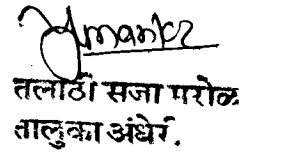 तलाठी सजा परोळ
तालुका अंधेरी.